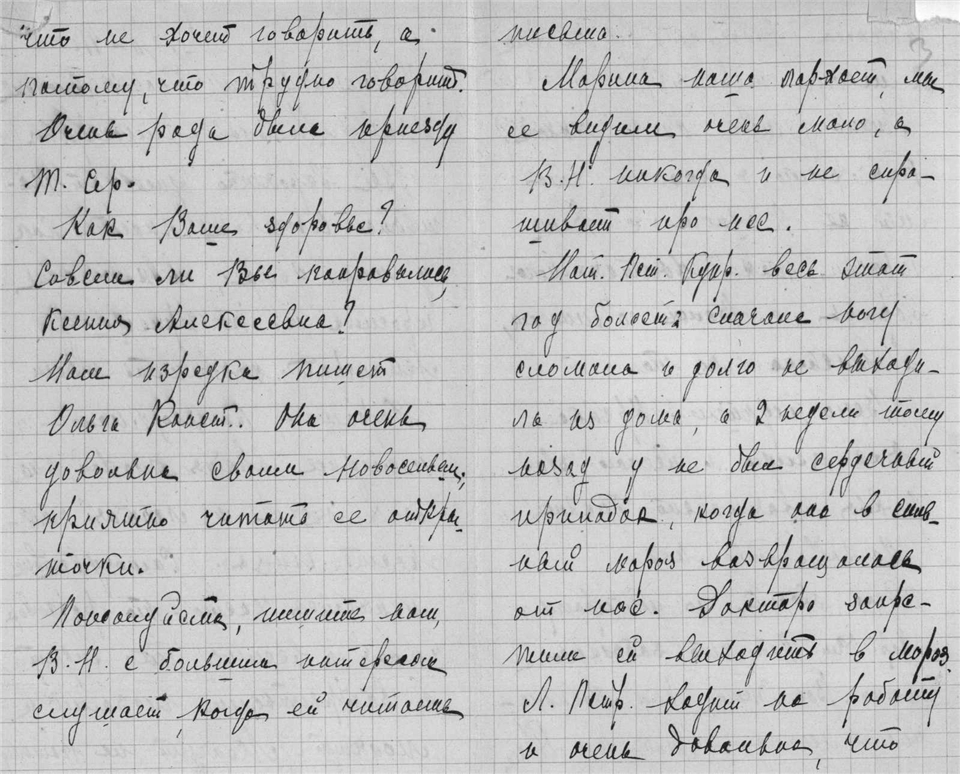 что не хочет говорить, а
потому, что трудно говорит.
Очень рада была приезду
Т. Сер.
Как Ваше здоровье?
Совсем ли Вы поправились,
Ксения Алексеевна?
Нам изредка пишет
Ольга Конст. Она очень
довольна своим новосельем,
приятно читать ее открыточки.
Пожалуйста, пишите нам,
В.Н. с большим интересом
слушает, когда ей читаешь
письма.
Марина наша порхает, мы
ее видим очень мало, а
В.Н. никогда и не спра-
шивает про нее.
Нат. Пет. весь этот
год болеет: сначала ногу
сломала и долго не выходи-
ла из дома, а 2 недели тому
назад у не был сердечный
припадок, когда она в силь-
ный мороз возвращалась
от нас. Доктора запре-
тили ей выходить в мороз.
Л. Петр. ходит на работу
и очень довольна, что